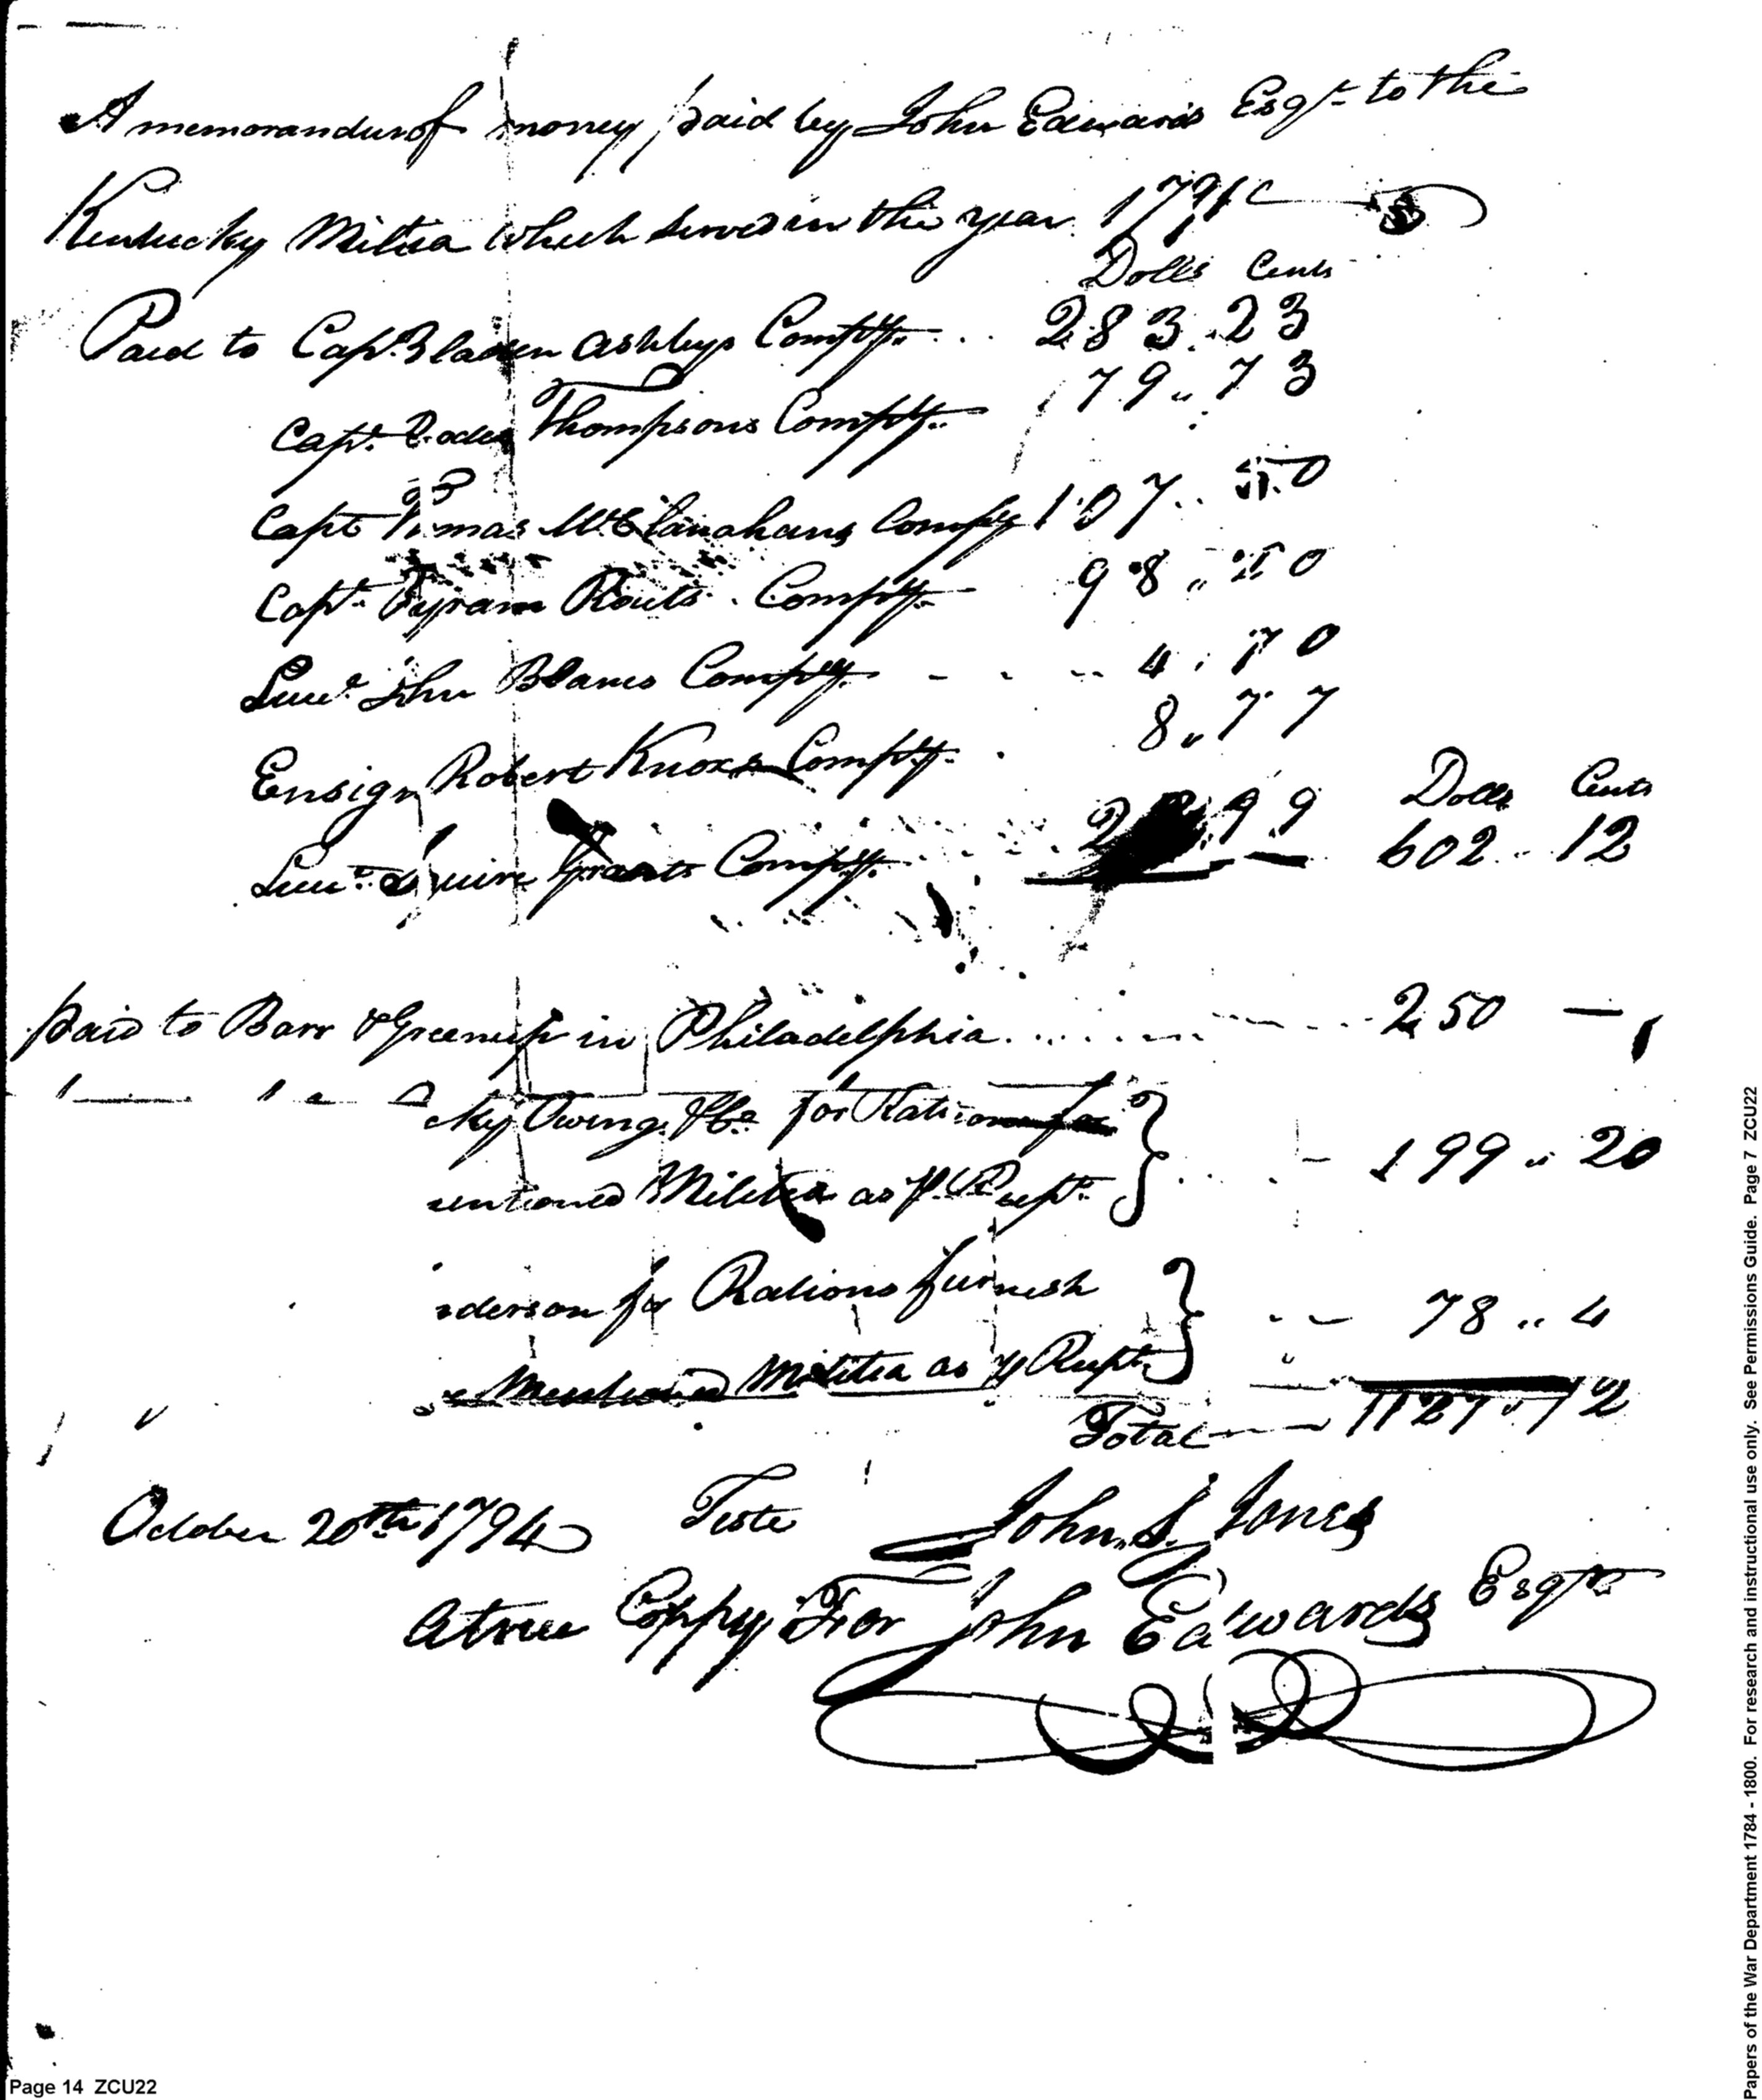 A memorandum of money paid by John Edwards Esqr. to the
Kentucky Militia which served in the year 1791
Dolls Cents
Paid to Capt. Bladen Ashbys Compy. .. 283..23
Capt. Thompsons Compy. 79..73
Capt Tomas McClanahans Compy 107..50
Capt. Byram Routs Compy. 98..20
Lieut. John Blanes Compy. - - - 4.70
Ensign Robert Knoxs Compy. 8..77
Dolls Cents
Lieut. Squire Grants Compy. 99 602..12
paid to Barr & Greenup in Philadelphia ...... 250 —
" " " Owing & Co. for Rations for
mentioned Militia as Pr. Recpt. } 199..20
derson for Rations furnish
Mentioned Militia as Pr Recpt. } 78..4
Total 1127..12
October 20th 1794 Teste John S. Jones
A true Coppy For John Edwards Esqr.
Page 14 ZCU22
Papers of the War Department 1784 - 1800. For research and instructional use only. See Permissions Guide. Page 7 ZCU22